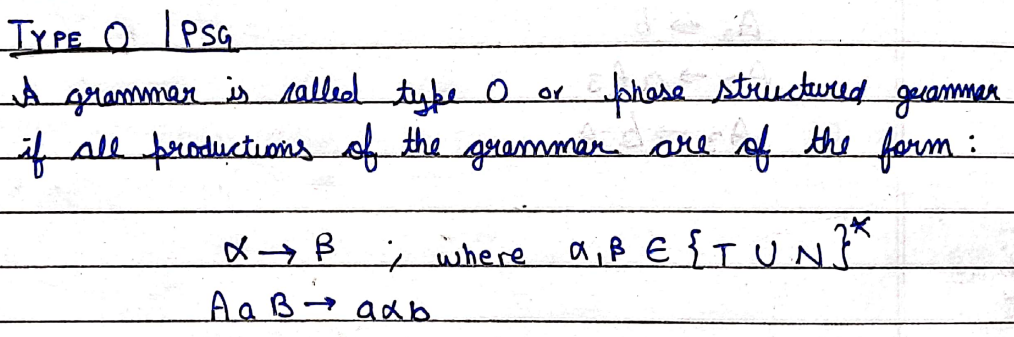 TYPE 0 | PSG
A grammar is called type 0 or phase structured grammar
if all productions of the grammar are of the form :
α → β ; where α, β ∈ {T U N}*
A a B → aαb